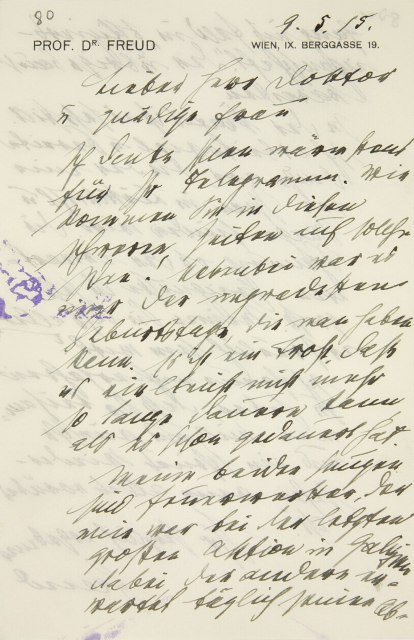 80
9. 5. 15.
PROF. DR. FREUD
WIEN, IX. BERGGASSE 19.
Lieber Herr Doktor
u gnädige Frau
Ich danke Ihnen wärmstens
für Ihr Telegramm. Wie
kommen Sie in diesen
schweren Zeiten auf solche
Idee! Nebenbei war es
einer der
Geburtstage, die man haben
kann. Es ist ein Trost, daß
es vielleicht nicht mehr
so lange dauern kann
als es schon gedauert hat.
Meine beiden Jungen
sind Feuerwerker, der
eine war bei der letzten
großen Aktion in Galizien
dabei, der andere er-
wartet täglich seine Ab-